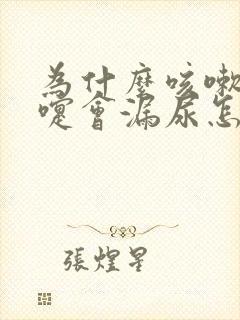 為什麼咳嗽
嚏會漏尿怎
張煌星